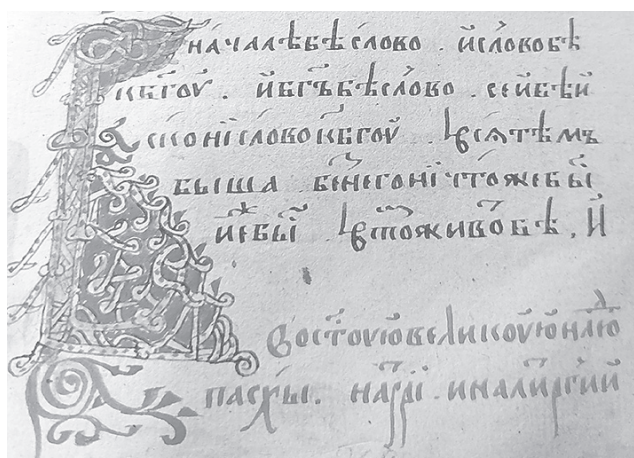 В началѣ бѣ слово . и слово бѣ
к бг҃оу . и бг҃ъ бѣ слово . сей бѣ и
скони слово к бг҃оу . всѧ тѣмъ
быша беꙁ него ничтоже бы
иже бы . в то животъ бѣ . и
во ст҃оую великоую нлⷣю
пасхы . и на литргии